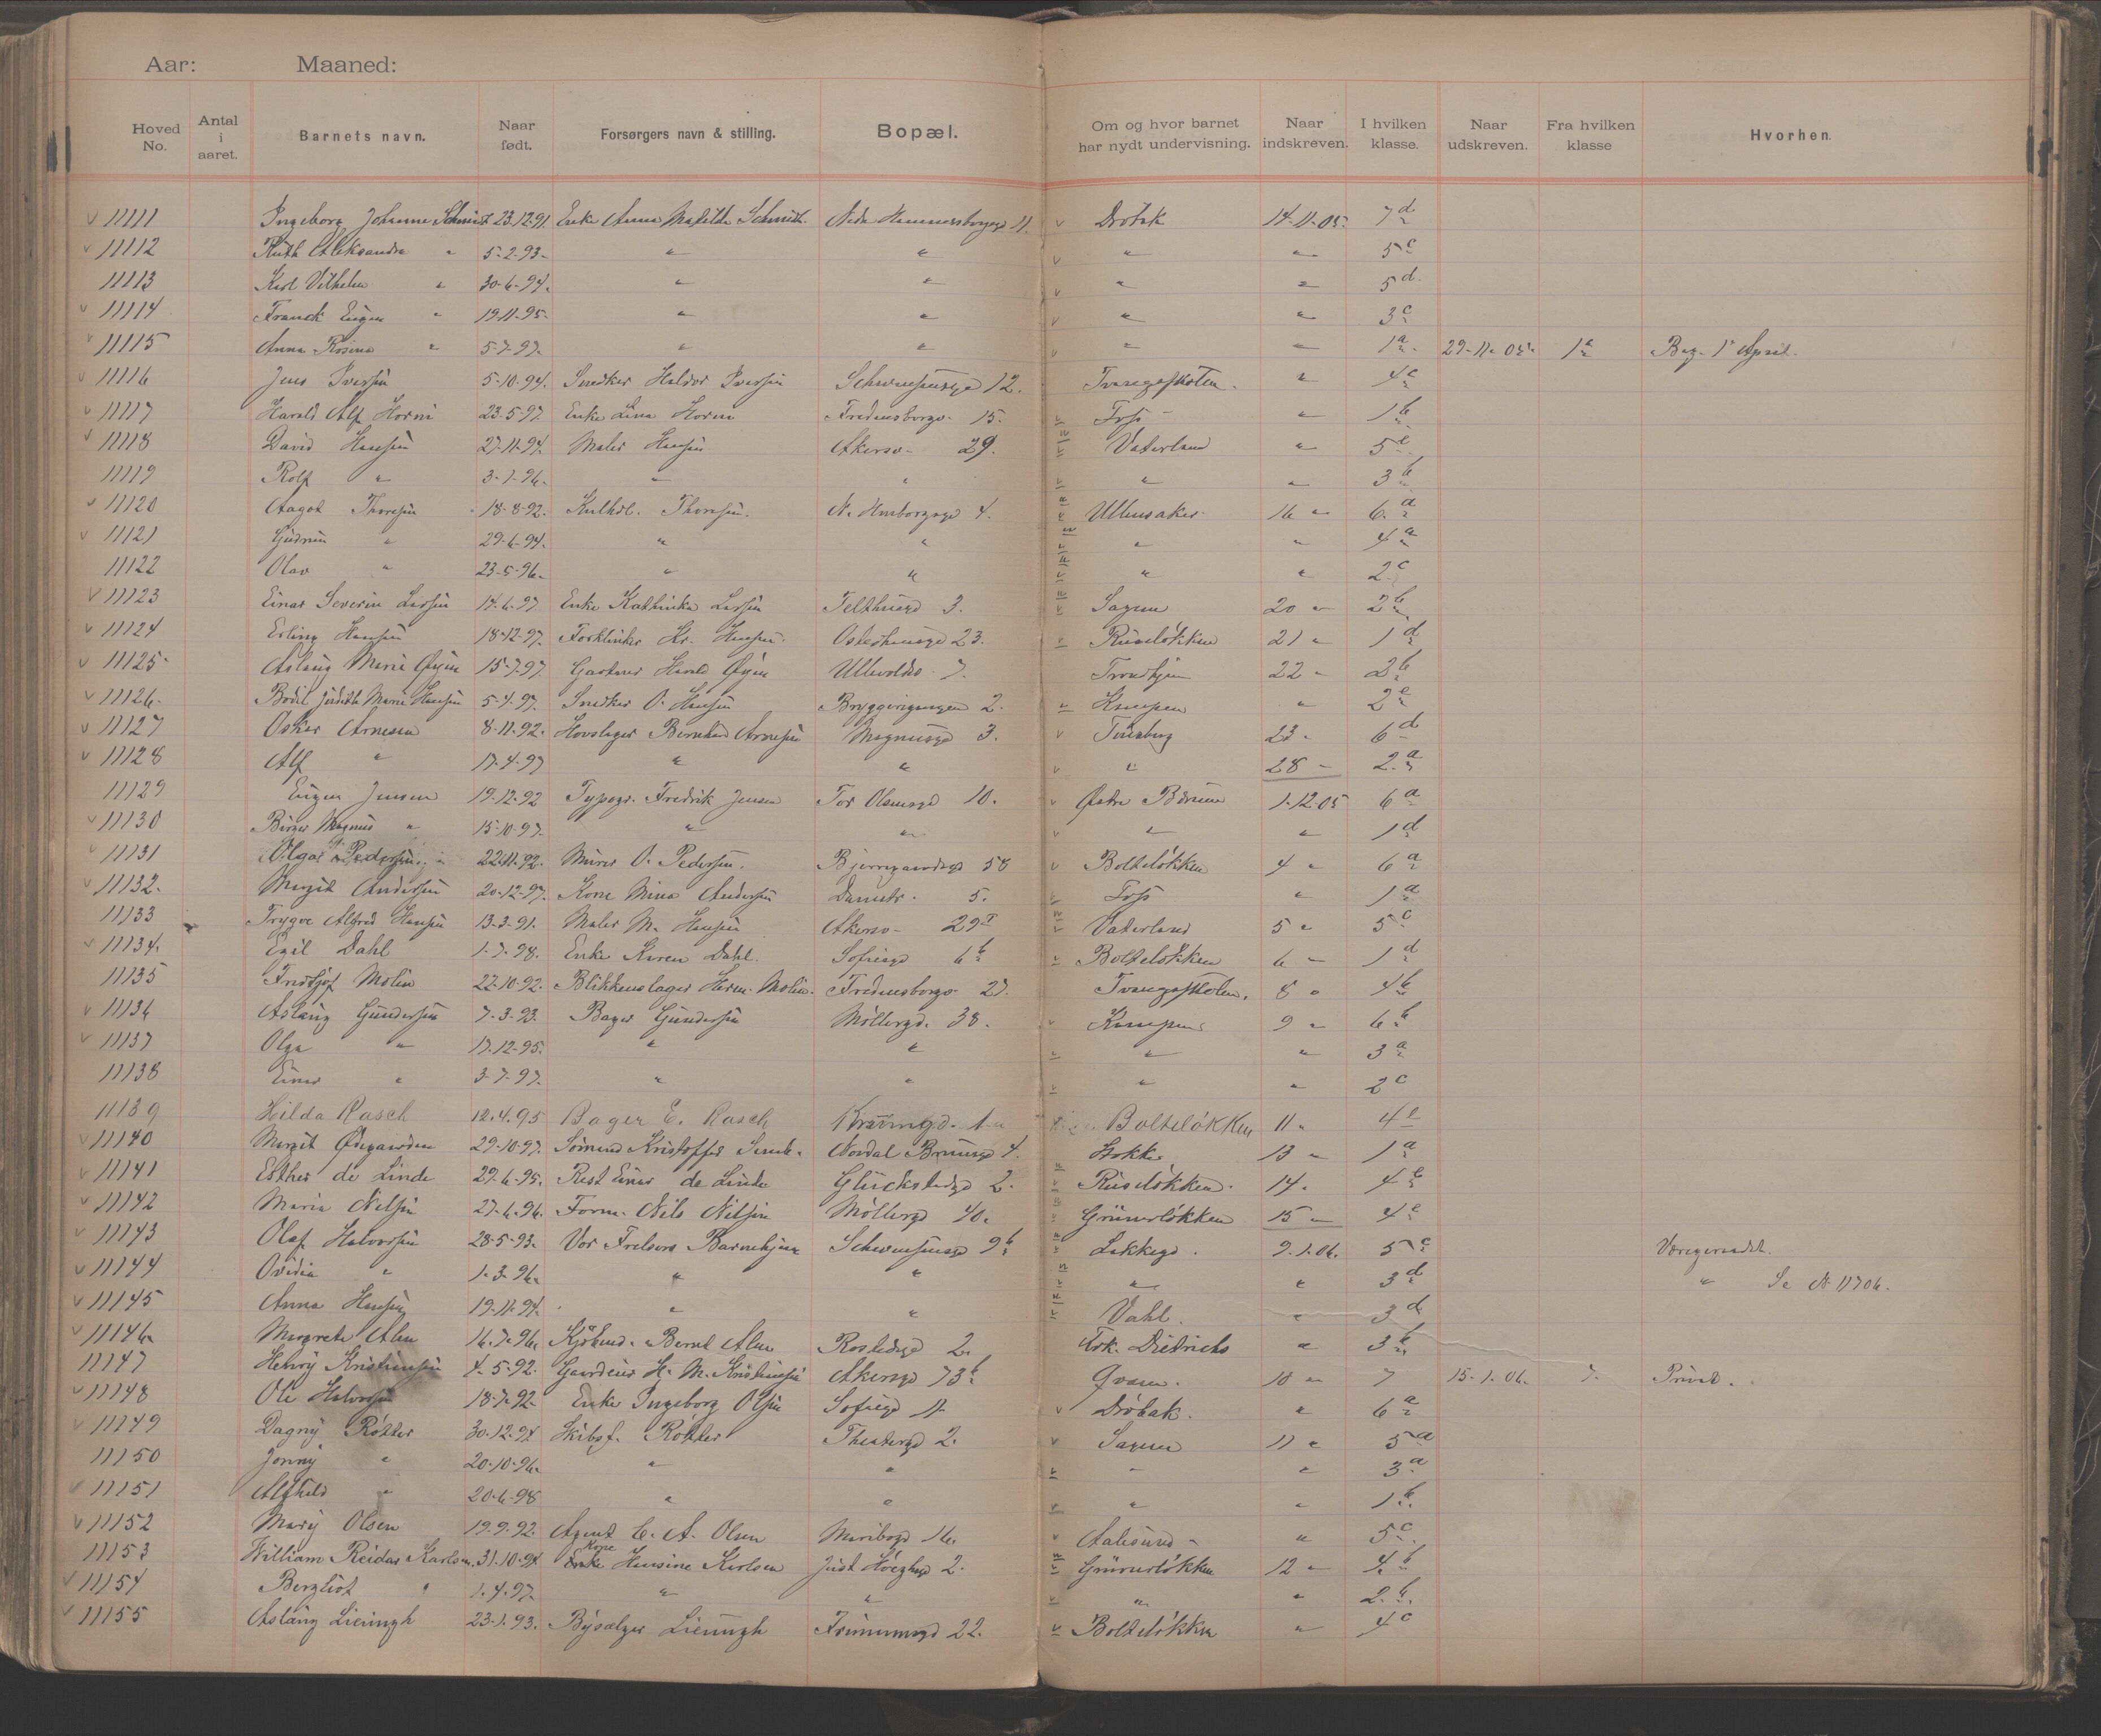 Aar: Maaned:
Hoved No. Antal i aaret. Barnets navn. Naar født. Forsørgers navn & stilling. Bopæl. Om og hvor barnet har nydt undervisning. Naar indskreven. I hvilken klasse. Naar udskreven. Fra hvilken klasse Hvorhen.
v 11111 Ingeborg Johanne Schmidt 23.12.91. Enke Anna Mathilde Schmidt. 11. v Drøbak 14-11-05. 7 d
v 11112 Ruth Aleksandra " 5-2-93- " " v " " 5 c
v 11113 Karl Vilhelm " 30-6-94. " " v " " 5 d.
v 11114 Franck Eugen " 19-11-95- " " v " " 3 c
v 11115 Anna Rosina " 5-7-97. " " " " 1 a. 29-11-05. 1 a Beg. 1 April.
v 11116 Jens Iversen 5-10-94. Snedker Haldor Iversen Schwensensgd 12. Tvangsskolen. " 4 c
v 11117 Harald Alf Horni 23-5-97 Enke Lina Horni Fredensborgv. 15. v Fos " 1 b
v 11118 David Hansen 27-11-94. Maler Hansen Akersv- 29. v Vaterland " 5 e
11119 Rolf " 3-1-96. " " v " " 3 b
v 11120 Aagot Thoresen 18-8-92. Thoresen. 4. v Ullensaker 16 " 6. a
v 11121 Gudrun " 29-6-94. " " v " " 4 a
11122 Olav " 23-5-96. " " v " " 2. c
v 11123 Einar Severin Larsen 14-6-97. Enke Kathinka Larsen Telthusgd 3. v Sagene 20 " 2 b
v 11124 Erling Hansen 18-12-97. Hr. Hansen. Osterhausgd 23. v Ruseløkken 21 " 1 d
v 11125- Aslaug Marie Øyen 15-7-97 Gartner Øyen Ullevoldsv. 7. Trondhjem 22 " 2 b
v 11126. Bodil Judith Marie Hansen 5-4-97. Snedker O. Hansen Bryggerigangen 2. v Kampen " 2 e
v 11127 Oskar Arnesen 8-11-92. Hovslager Bernhard Arnesen Magnusgd 3. v Tønsberg 23 - 6 d
v 11128 Alf " 17-4-97 " " v " 28 - 2. a
11129 Eugen Jensen 19-12-92 Typogr. Fredrik Jensen Tor Olsensgd 10. v Østre Bærum 1-12-05 6 a
v 11130 Birger Magnus " 15-10-97. " " v " " 1 d
v 11131 Olga Pedersen 22-11-92. Murer O. Pedersen. Bjerregaardsgd 58 v Bolteløkken 4 " 6 a
v 11132. Margit Andersen 20-12-97. Kone Mina Andersen Damstr. 5. v Fos " 1 a
11133 Trygve Alfred Hansen 13-3-91. Maler M. Hansen Akersv- 29 I v Vaterland 5 " 5 c
v 11134. Egil Dahl 1-7-98. Enke Karen Dahl. Sofiesgd 6 b v Bolteløkken 6 - 1 d
11135 Fridtjof Molin 22-10-92. Blikkenslager Herm. Molin. Fredensborgv. 27. Tvangsskolen. 8 " 4 b
v 11136 Aslaug Gundersen 7-3-93. Bager Gundersen Møllergd. 38. v Kampen 9 " 6 b
v 11137 Olga " 17-12-95. " " v " " 3 a
11138 Einar " 3-7-97. " " v " " 2 c
11139 Hilda Rasch 12.4.95 Bager E. Rasch v Bolteløkken 11 " 4 e
v 11140 Margit Ødegaarden 29-10-97. Sømand Kristoffer Nordal Brunsgd 4. Stokke 13 " 1 a
v 11141 Esther de Linde 29-6-95. Rest Einar de Linde Glückstadgd 2. v Ruseløkken. 14. 4 b
v 11142 Maria Nilsen 27-6-96. Form. Nils Nilsen Møllergd 40. v Grünerløkken 15 - 4 e
v 11143 Olaf Halvorsen 28-5-93. Vor Frelsers Barnehjem Schwensensgd 9 b v Lakkegd. 9.1.06. 5 c Vergeraadet.
v 11144 Ovidia " 1-3-96. " " v " " 3 d " Se N 11706.
v 11145 Anna Hansen 19-11-94. " " v Vahl. " 3 d
v 11146 Margrete Alm 16-7-96. Kjøbmd. Bernt Alm Rostedsgd 2. Frk. Dietrichs " 3 b
11147 Henry Kristiansen 4-5-92. Gaardeier H. M. Kristiansen Akersgd 73 b Qvam. 10 " 7 15-1-06. 7. Privat.
v 11148 Ole Halvorsen 18-7-92- Enke Ingeborg Olsen Sofiesgd 11 v Drøbak. " 6 a
v 11149 Dagny Røtter 30-12-94 Skibsf. Røtter Theatergd 2. v Sagene 11 " 5 a
11150 Jenny " 20-10-96. " " v " " 3 a
v 11151 Alfhild " 20-6-98 " " v " " 1 b.
v 11152 Mary Olsen 19-9-92. Agent C. A. Olsen Maribogd 16. v Aalesund - " 5 c
11153 William Reidar Karlsen. 31-10-94 Kone Hansine Karlsen Just Høeghsgd 2. v Grünerløkken 12 - 4. b
v 11154 Bergliot " 1.4.97. " " v " " 2. b.
v 11155 Aslaug Lieungh 23-1-93. Bysælger Lieungh Frimannsgd 22. v Bolteløkken " 4 c